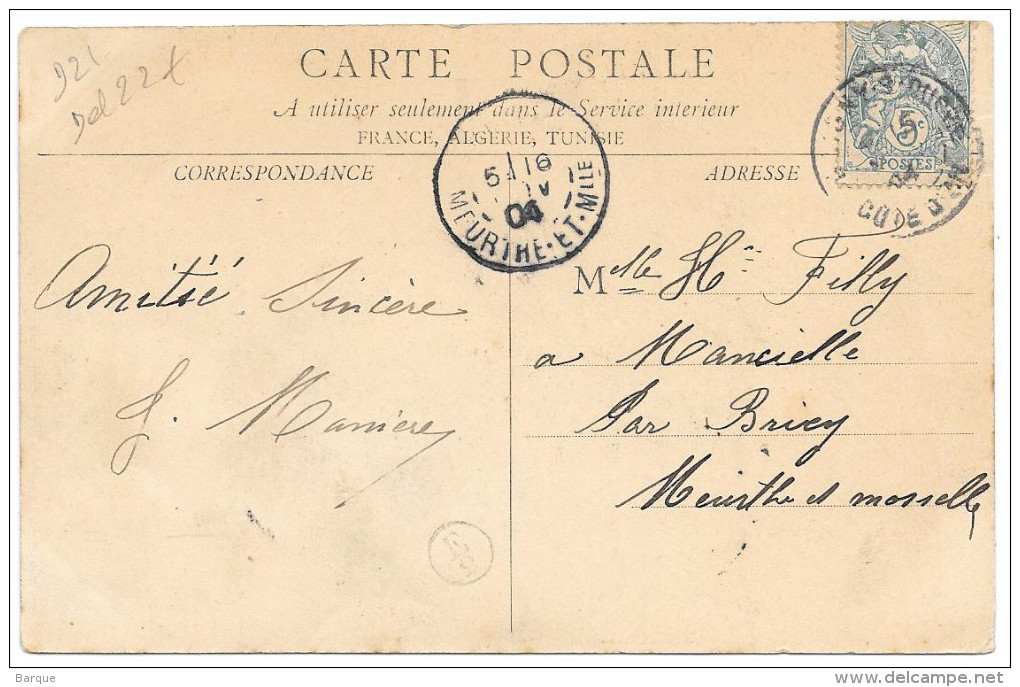 D21
Del 22x
CARTE POSTALE
A utiliser seulement dans le Service interieur
FRANCE, ALGERIE, TUNISIE
CORRESPONDANCE
ADRESSE
5
16
04
MEURTHE-ET-MLLE
5c
POSTES
COTE D'OR
Amitié Sincère
Melle H Filly
a Mancielle
Par Briey
Meurthe et mosselle
Barque
delcampe.net